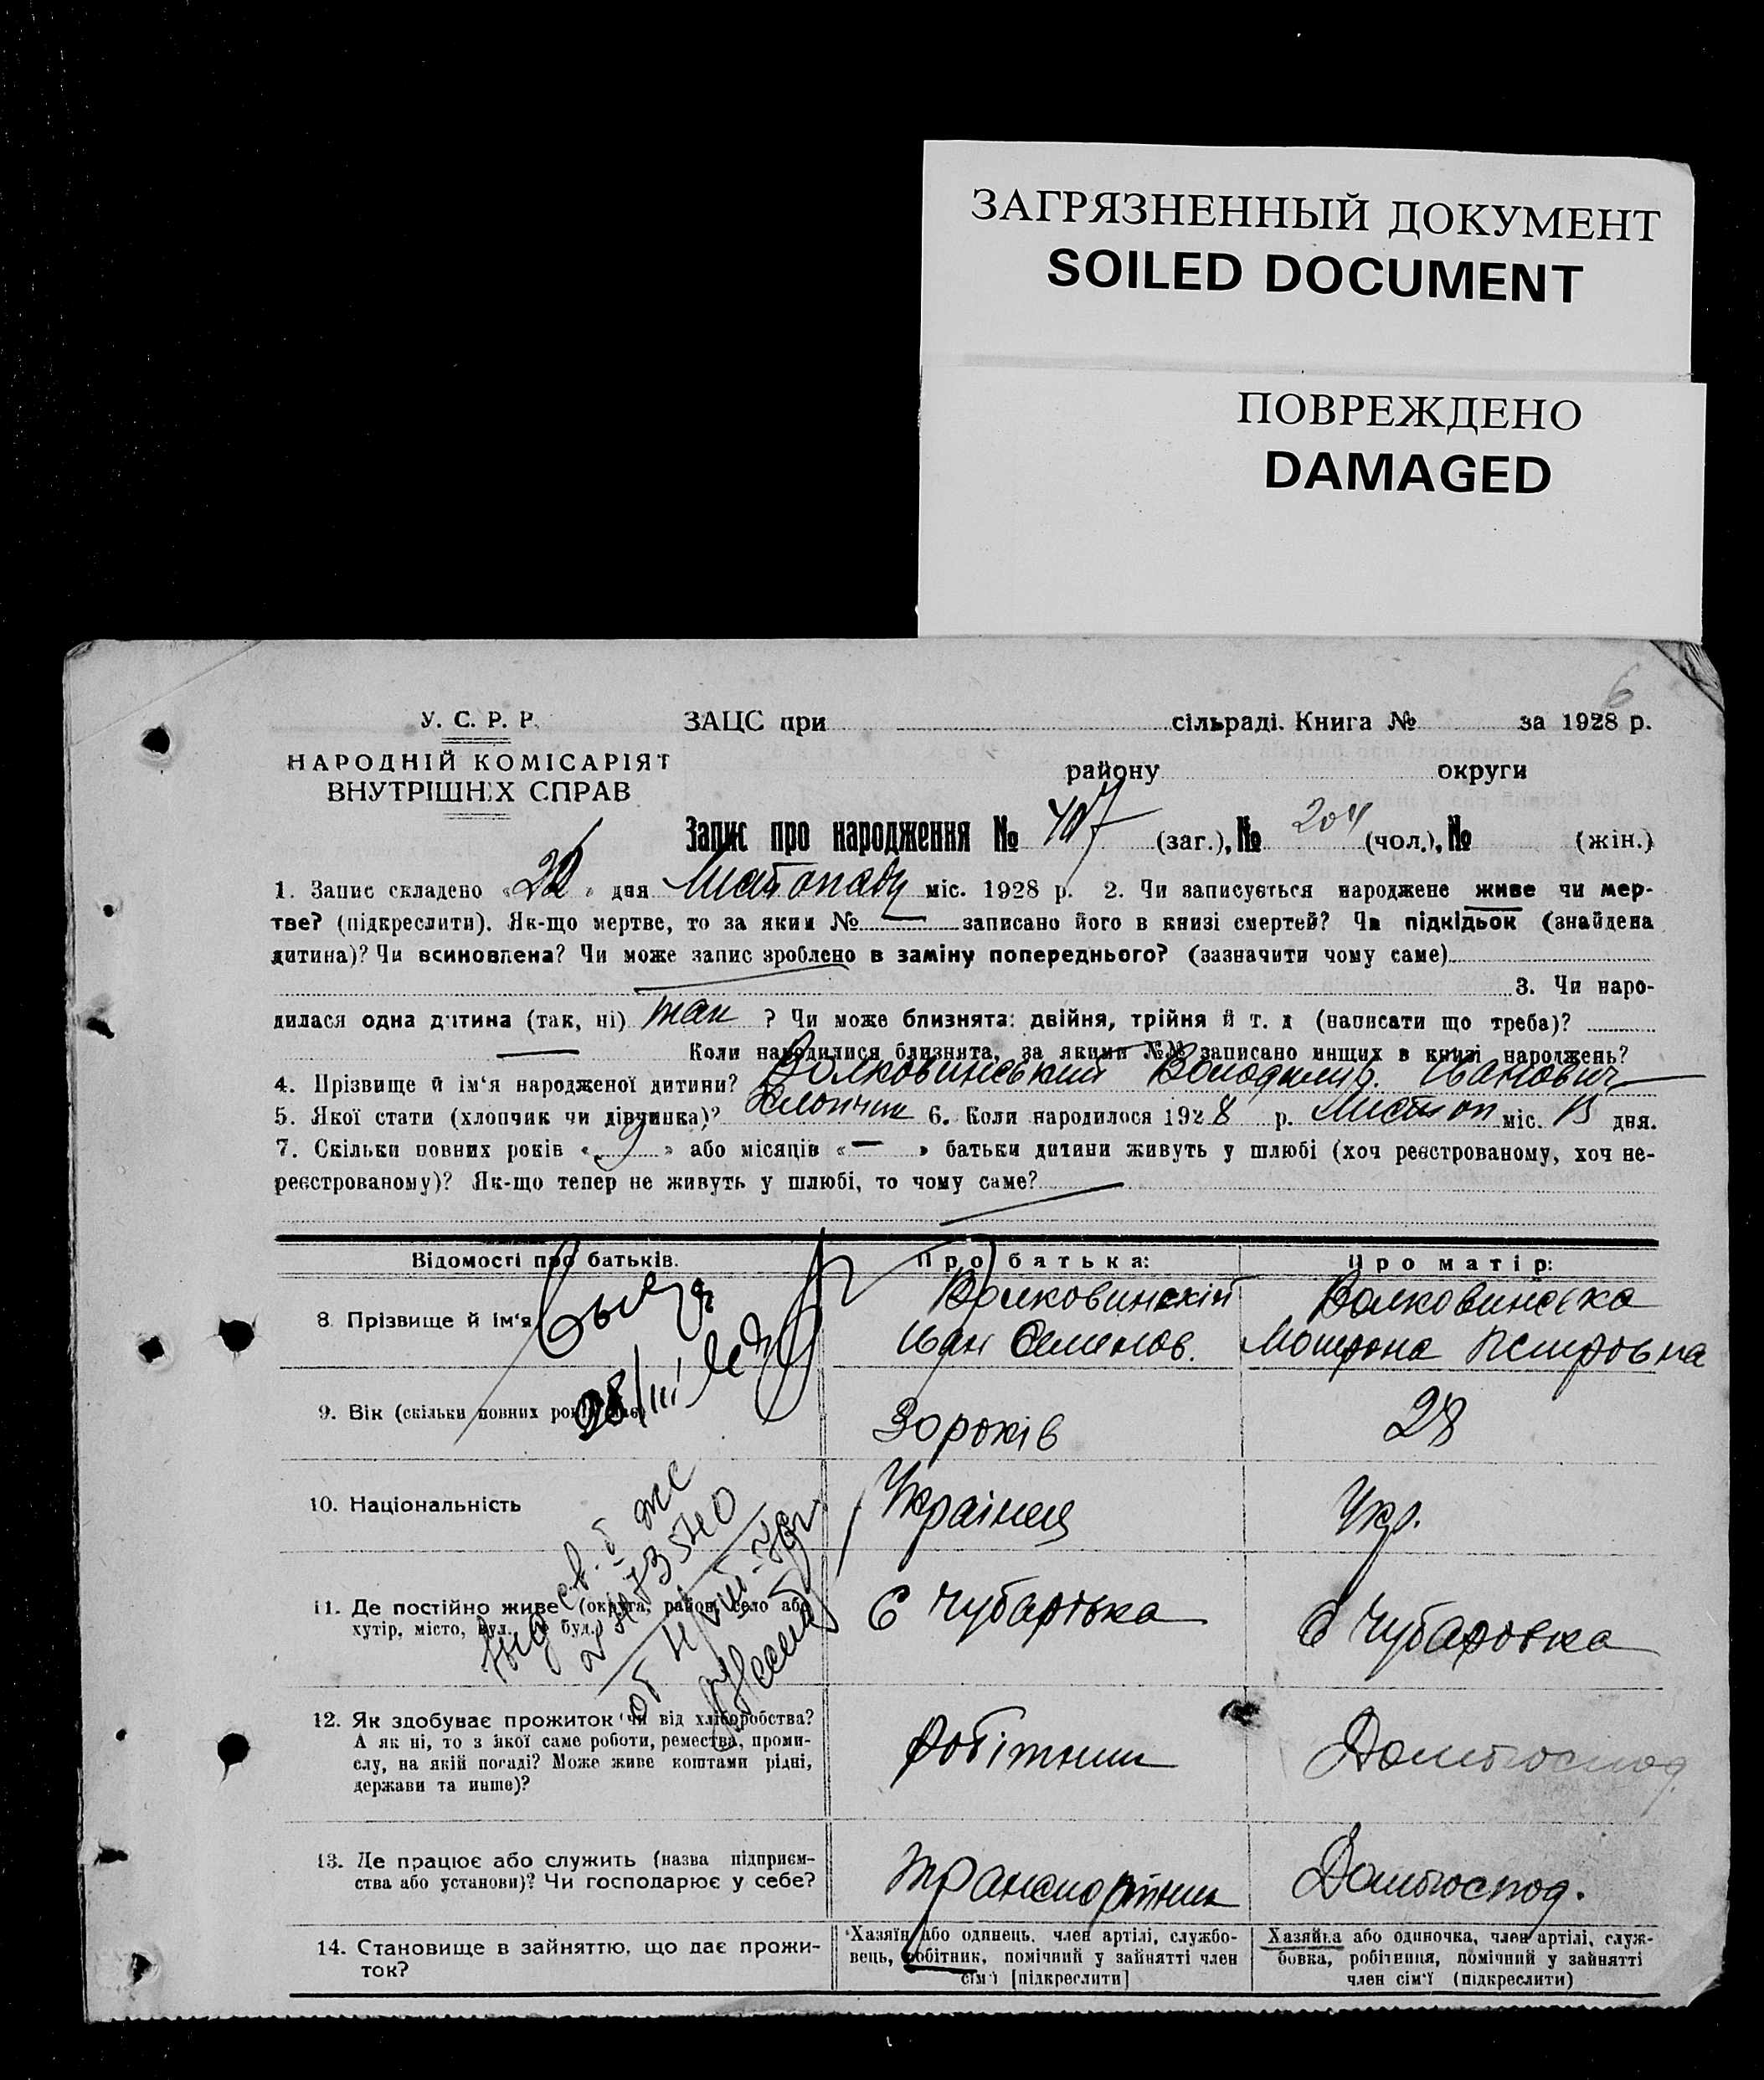 ЗАГРЯЗНЕННЫЙ ДОКУМЕНТ
SOILED DOCUMENT
ПОВРЕЖДЕНО
DAMAGED
6
У. С. Р. Р. ЗАЦС при сільраді. Книга № за 1928 р.
НАРОДНІЙ КОМІСАРІЯТ
ВНУТРІШНІХ СПРАВ
району округи
Запис про народження № 407 (заг.), № 204 (чол.), № (жін.)
1. Запис складено « » дня Листопаду міс. 1928 р. 2. Чи записується народжене живе чи мер-
тве? (підкреслити). Як-що мертве, то за яким № — записано його в книзі смертей? Чи підкідьок (знайдена
дитина)? Чи всиновлена? Чи може запис зроблено в заміну попереднього? (зазначити чому саме)
3. Чи наро-
дилася одна дитина (так, ні) так ? Чи може близнята: двійня, трійня й т. д (написати що треба)?
— Коли народилися близнята, за якими №№ записано инщих в книзі народжень?
4. Прізвище й ім'я народженої дитини? Волковинський Володимир. Іванович
5. Якої статі (хлопчик чи дівчинка)? Хлопчик 6. Коли народилося 1928 р. Листоп міс. 13 дня.
7. Скільки повних років « 9 » або місяців « — » батьки дитини живуть у шлюбі (хоч реєстрованому, хоч не-
реєстрованому)? Як-що тепер не живуть у шлюбі, то чому саме?
Відомості про батьків. Про батька: Про матір:
8. Прізвище й ім'я Волковинский Волковинська
Іван Семенов. Мотрона Петровна
9. Вік (скільки повних років має) 30 років 28
28/III
10. Національність Українец Укр.
11. Де постійно живе (округа, район, село або
хутір, місто, вул. буд.) С Чубарівка С Чубаровка
12. Як здобуває прожиток чи від хліборобства?
А як ні, то з якої саме роботи, ремества, проми-
слу, на якій посаді? Може живе коштами рідні,
держави та инше)? робітник Домгоспод.
13. Де працює або служить (назва підприєм-
ства або установи)? Чи господарює у себе? Транспортник Домгоспод.
14. Становище в зайняттю, що дає прожи-
ток?
Хазяїн або одинець, член артілі, службо-
вець, робітник, помічний у зайнятті член
сім'ї [підкреслити]
Хазяйка або одиночка, член артілі, служ-
бовка, робітниця, помічний у зайнятті
член сім'ї (підкреслити)